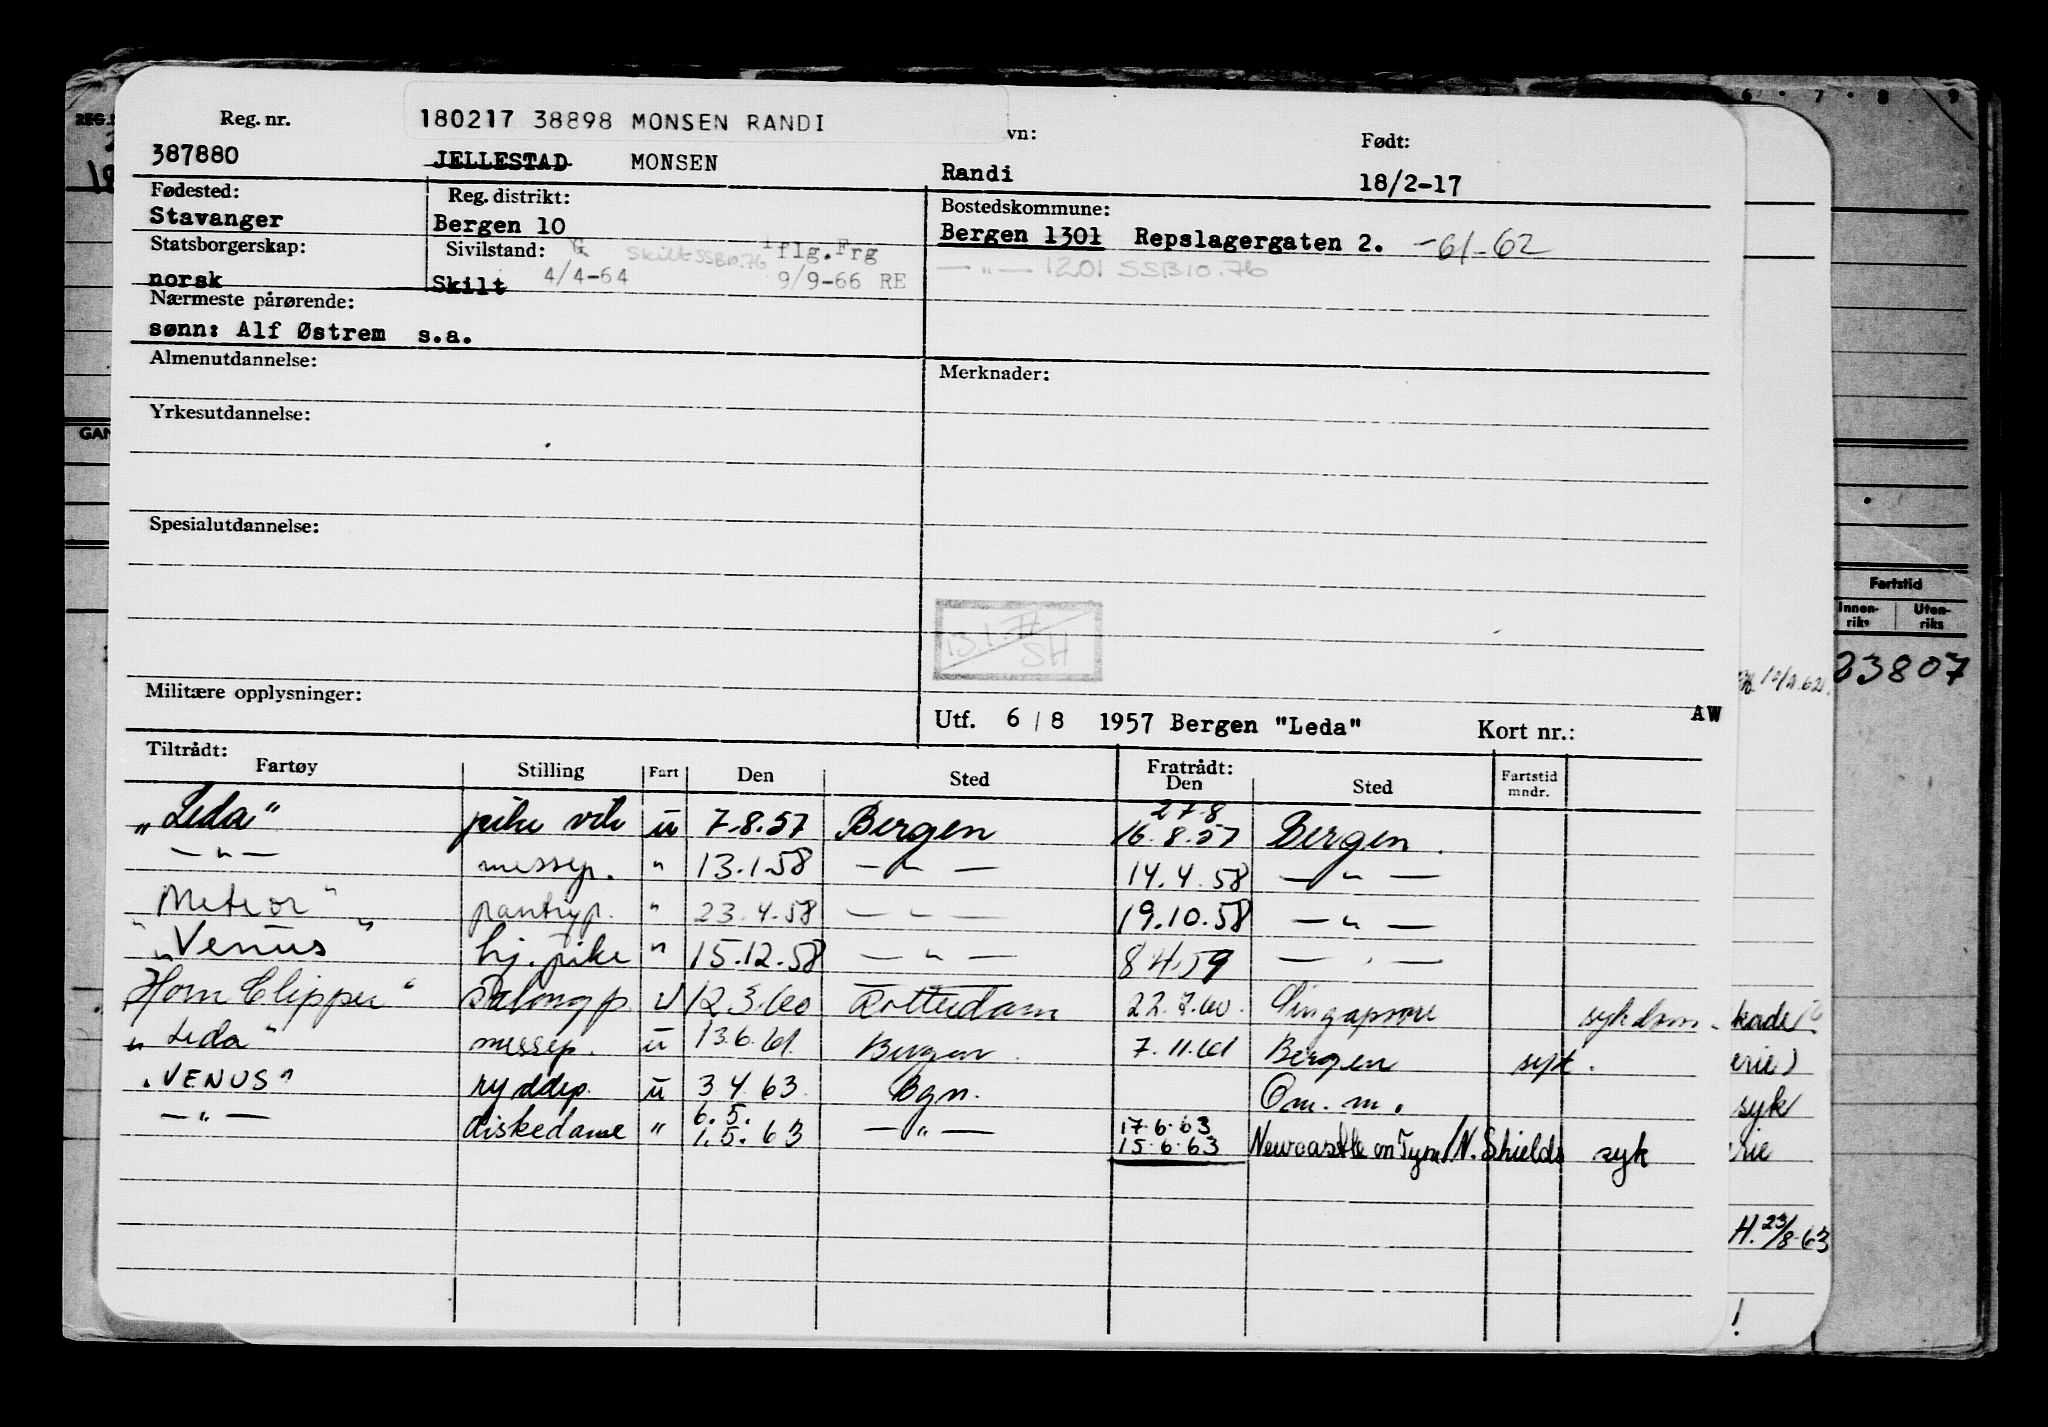 Reg. nr. 180217 38898 MONSEN RANDI vn: Født:
387880 JELLESTAD MONSEN Randi 18/2-17
Fødested: Reg. distrikt: Bostedskommune:
Stavanger Bergen 10 Bergen 1301 Repslagergaten 2. -61-62
Statsborgerskap: Sivilstand: G Skilt SSB10.76 1flg.Frg — " — 1201 SSB10.76
norsk Skilt 4/4-64 9/9-66 RE
Nærmeste pårørende:
sønn: Alf Østrem s.a.
Almenutdannelse: Merknader:
Yrkesutdannelse:
Spesialutdannelse:
13.1.77 SH
Militære opplysninger:
Utf. 6/8 1957 Bergen "Leda" Kort nr.: AW
Tiltrådt: Fratrådt:
Fartøy Stilling Fart Den Sted Den Sted Fartstid mndr.
27-8
"Leda" pike vik u 7.8.57 Bergen 16.8.57 Bergen.
— " — messep. " 13.1.58 — " — 14.4.58 — " —
"Meteor" pantryp. " 23.4.58 — " — 19.10.58 — " —
"Venus" hj. pike " 15.12.58 — " — 8.4.59 — " —
Horn Clipper" Salongp. u 12.3.60 Rotterdam 22.7.60. Singapore sykdom.
"Leda" messep. u 13.6.61. Bergen. 7.11.61 Bergen syk.
"VENUS" ryddep. u 3.4.63. Bgn. Om. m.
6.5. 17.6.63
— " — diskedame " 1.5.63 — " — 15.6.63 Newcastle on Tyne/N. Shields syk
REG.
GAN
6 · 7 · 8 9
Fartstid
Innen-riks Uten-riks
23807
syk
H. 23/8-63
!